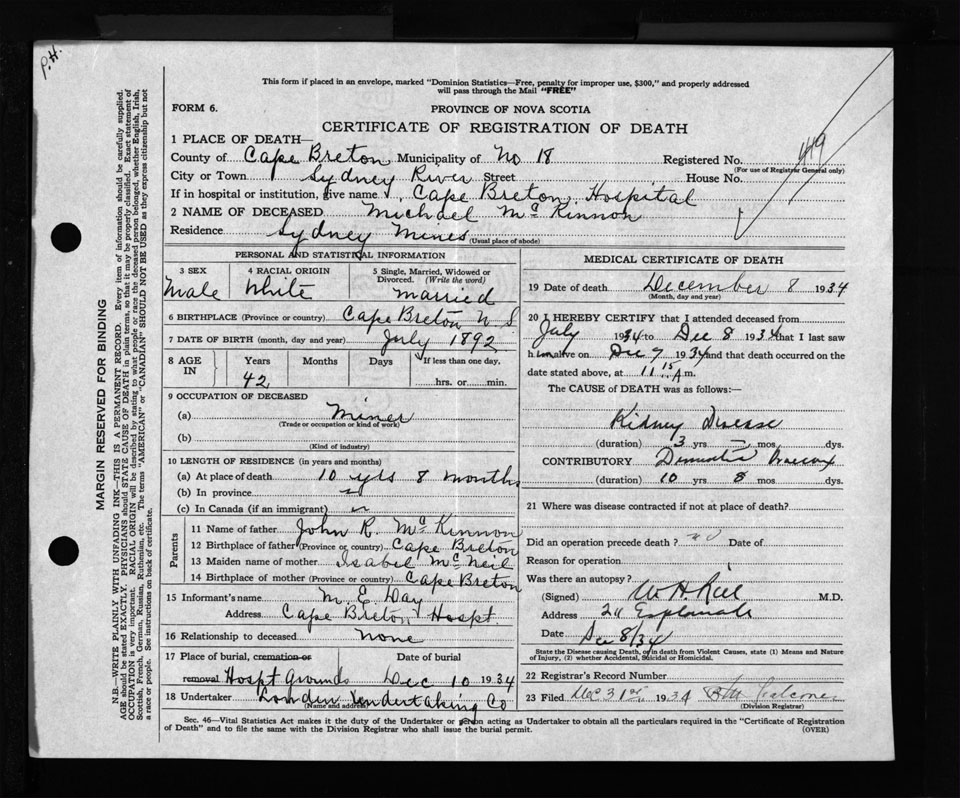 P.H.
This form if placed in an envelope, marked "Dominion Statistics—Free, penalty for improper use, $300," and properly addressed
will pass through the Mail "FREE"
FORM 6.
PROVINCE OF NOVA SCOTIA
CERTIFICATE OF REGISTRATION OF DEATH
419
1 PLACE OF DEATH—
County of Cape Breton Municipality of No 18 Registered No.
(For use of Registrar General only)
City or Town Sydney River Street House No.
If in hospital or institution, give name Cape Breton Hospital
2 NAME OF DECEASED Michael McKinnon
Residence Sydney Mines
(Usual place of abode)
PERSONAL AND STATISTICAL INFORMATION
3 SEX 4 RACIAL ORIGIN 5 Single, Married, Widowed or
Divorced. (Write the word)
Male White married
6 BIRTHPLACE (Province or country) Cape Breton N S
7 DATE OF BIRTH (month, day and year) July 1892
8 AGE IN Years Months Days If less than one day.
42 hrs. or min.
9 OCCUPATION OF DECEASED
(a) Miner
(Trade or occupation or kind of work)
(b)
(Kind of industry)
10 LENGTH OF RESIDENCE (in years and months)
(a) At place of death 10 yrs 8 months
(b) In province
(c) In Canada (if an immigrant)
Parents
11 Name of father John R. McKinnon
12 Birthplace of father (Province or country) Cape Breton
13 Maiden name of mother Isabel McNeil
14 Birthplace of mother (Province or country) Cape Breton
15 Informant's name M. E. Day
Address Cape Breton Hospt
16 Relationship to deceased None
17 Place of burial, cremation or Date of burial
removal Hospt Grounds Dec 10 1934
18 Undertaker Lowden Undertaking Co
(Name and address)
MEDICAL CERTIFICATE OF DEATH
19 Date of death December 8 1934
(Month, day and year)
20 I HEREBY CERTIFY that I attended deceased from
July 1934 to Dec 8 1934 that I last saw
h im alive on Dec 7 1934 and that death occurred on the
date stated above, at 11 15 A m.
The CAUSE of DEATH was as follows:—
Kidney Disease
(duration) 3 yrs. — mos. dys.
CONTRIBUTORY Dementia Praecox
(duration) 10 yrs. 8 mos. dys.
21 Where was disease contracted if not at place of death?
Did an operation precede death? no Date of
Reason for operation
Was there an autopsy?
(Signed) M.D.
Address 211 Esplanade
Date Dec 8/34
State the Disease causing Death, or in death from Violent Causes, state (1) Means and Nature
of Injury, (2) whether Accidental, Suicidal or Homicidal.
22 Registrar's Record Number
23 Filed Dec 31st 1934
(Division Registrar)
Sec. 46—Vital Statistics Act makes it the duty of the Undertaker or person acting as Undertaker to obtain all the particulars required in the "Certificate of Registration
of Death" and to file the same with the Division Registrar who shall issue the burial permit.
(OVER)
MARGIN RESERVED FOR BINDING
N.B.—WRITE PLAINLY WITH UNFADING INK—THIS IS A PERMANENT RECORD. Every item of information should be carefully supplied.
AGE should be stated EXACTLY. PHYSICIANS should STATE CAUSE OF DEATH in plain terms, so that it may be properly classified. Exact statement of
OCCUPATION is very important. RACIAL ORIGIN will be described by stating to what people or race the deceased person belonged, whether English, Irish,
Scottish, French, German, Russian, Ruthenian, etc. The terms "AMERICAN" or "CANADIAN" SHOULD NOT BE USED as they express citizenship but not
a race or people. See instructions on back of certificate.